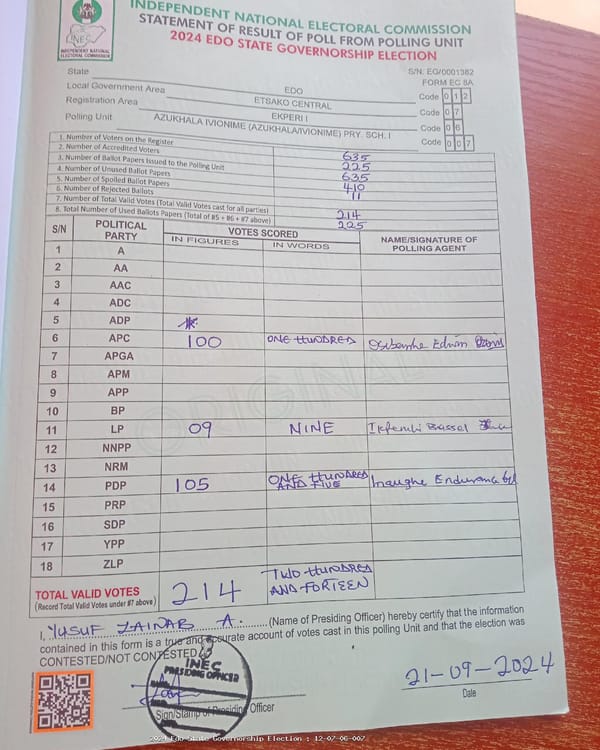 INDEPENDENT NATIONAL ELECTORAL COMMISSION
STATEMENT OF RESULT OF POLL FROM POLLING UNIT
2024 EDO STATE GOVERNORSHIP ELECTION
INEC
INDEPENDENT NATIONAL ELECTORAL COMMISSION
S/N: EG/0001382
FORM EC 8A
State EDO Code 0 1 2
Local Government Area ETSAKO CENTRAL Code 0 7
Registration Area EKPERI I Code 0 6
Polling Unit AZUKHALA IVIONIME (AZUKHALA/IVIONIME) PRY. SCH. I Code 0 0 7
1. Number of Voters on the Register 635
2. Number of Accredited Voters 225
3. Number of Ballot Papers Issued to the Polling Unit 635
4. Number of Unused Ballot Papers 410
5. Number of Spoiled Ballot Papers
6. Number of Rejected Ballots 11
7. Number of Total Valid Votes (Total Valid Votes cast for all parties) 214
8. Total Number of Used Ballots Papers (Total of #5 + #6 + #7 above) 225
S/N POLITICAL PARTY VOTES SCORED NAME/SIGNATURE OF POLLING AGENT
IN FIGURES IN WORDS
1 A
2 AA
3 AAC
4 ADC
5 ADP
6 APC 100 ONE HUNDRED Edwin
7 APGA
8 APM
9 APP
10 BP
11 LP 09 NINE Bassel
12 NNPP
13 NRM
14 PDP 105 ONE HUNDRED AND FIVE Endurance
15 PRP
16 SDP
17 YPP
18 ZLP
ORIGINAL
TOTAL VALID VOTES 214 TWO HUNDRED
(Record Total Valid Votes under #7 above) AND FORTEEN
I, YUSUF ZAINAB A. (Name of Presiding Officer) hereby certify that the information
contained in this form is a true and accurate account of votes cast in this polling Unit and that the election was
CONTESTED/NOT CONTESTED
INEC
PRESIDING OFFICER
21-09-2024
Sign/Stamp of Presiding Officer
Date
2024 Edo State Governorship Election : 12-07-06-007